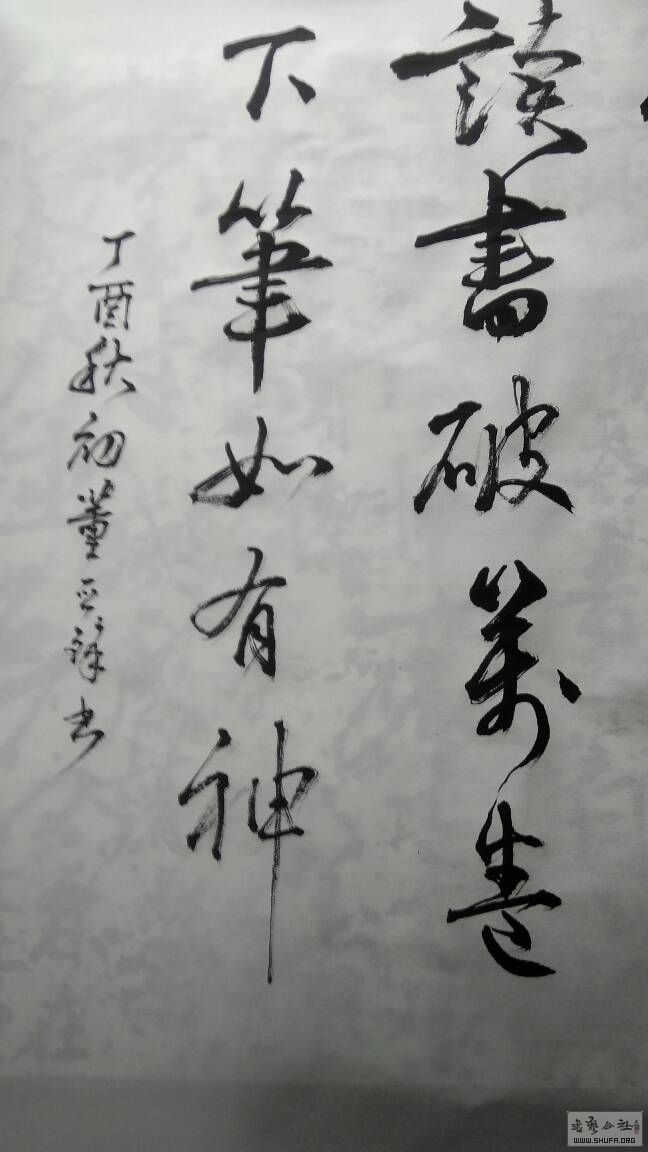 讀書破萬卷
下筆如有神
丁酉秋初董書
WWW.SHUFA.ORG